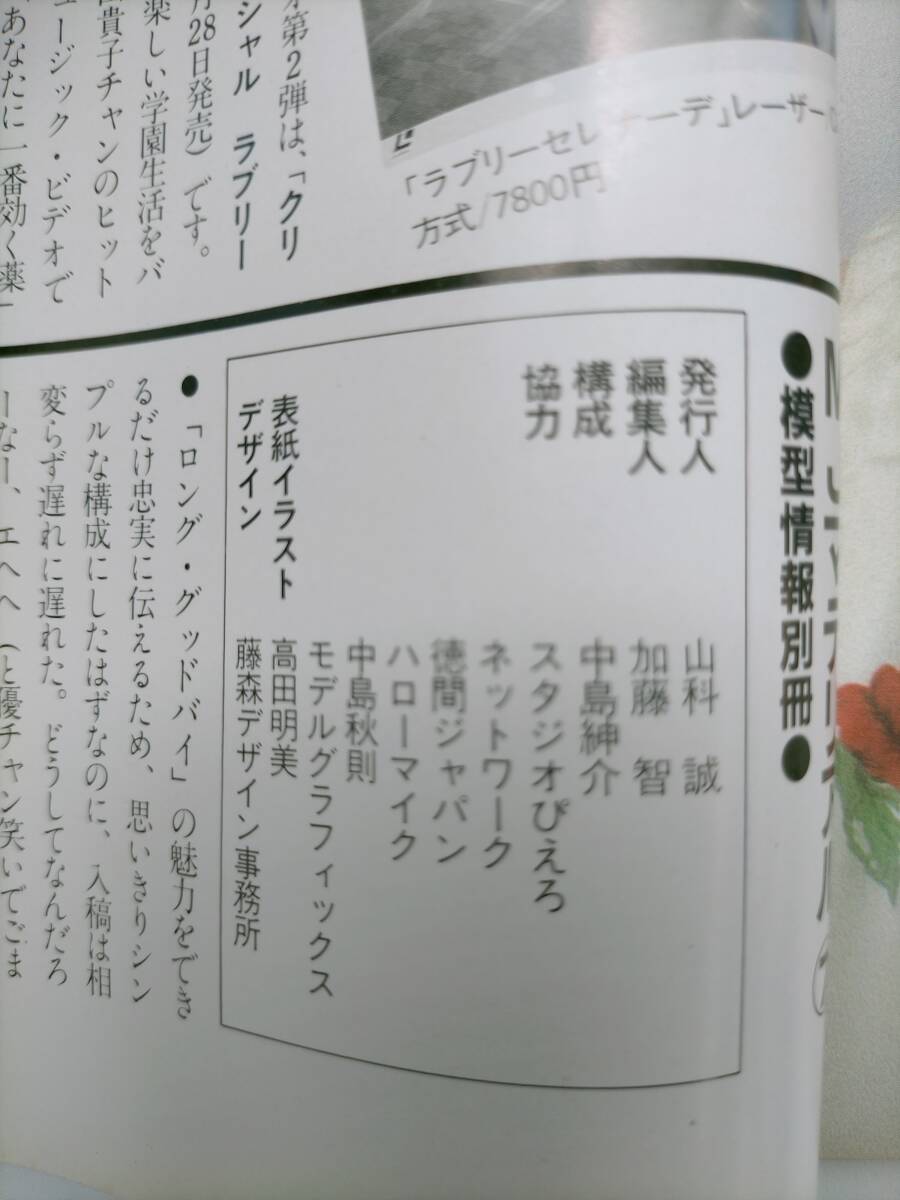 第2弾は、「クリ
シャル ラブリー
月28日発売）です。
楽しい学園生活をバ
貴子チャンのヒット
ュージック・ビデオで
あなたに一番効く薬」
「ラブリーセレナーデ」レーザー
方式/7800円
●模型情報別冊●
発行人 山科 誠
編集人 加藤 智
構成 中島紳介
協力 スタジオぴえろ
ネットワーク
徳間ジャパン
ハローマイク
中島秋則
モデルグラフィックス
表紙イラスト 高田明美
デザイン 藤森デザイン事務所
●「ロング・グッドバイ」の魅力をでき
るだけ忠実に伝えるため、思いきりシン
プルな構成にしたはずなのに、入稿は相
変らず遅れに遅れた。どうしてなんだろ
ーなー、エヘヘ（と優チャン笑いでごま